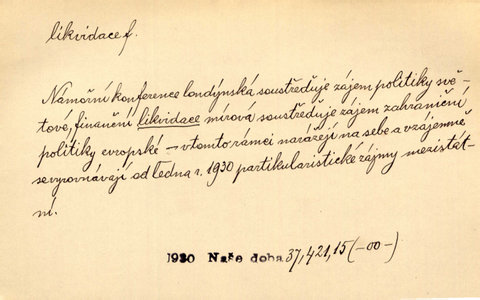 likvidace f.
Námořní konference londýnská soustřeďuje zájem politiky svě-
tové, finanční likvidace mírová soustřeďuje zájem zahraniční
politiky evropské – v tomto rámci narážejí na sebe a vzájemně
se vyrovnávají od ledna r. 1930 partikularistické zájmy mezistát-
ní.
1930 Naše doba 37, 421, 15 (-oo-)